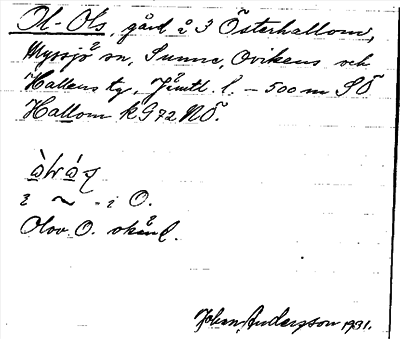 Ol-Ols, gård å 3 Österhallom,
Myssjö sn, Sunne, Ovikens och
Hallens tg, Jämtl. l. – 500 m SÖ
Hallom k 972 NÖ.
i ~ - i O.
Olov O. okänd.
Johan Andersson 1931.